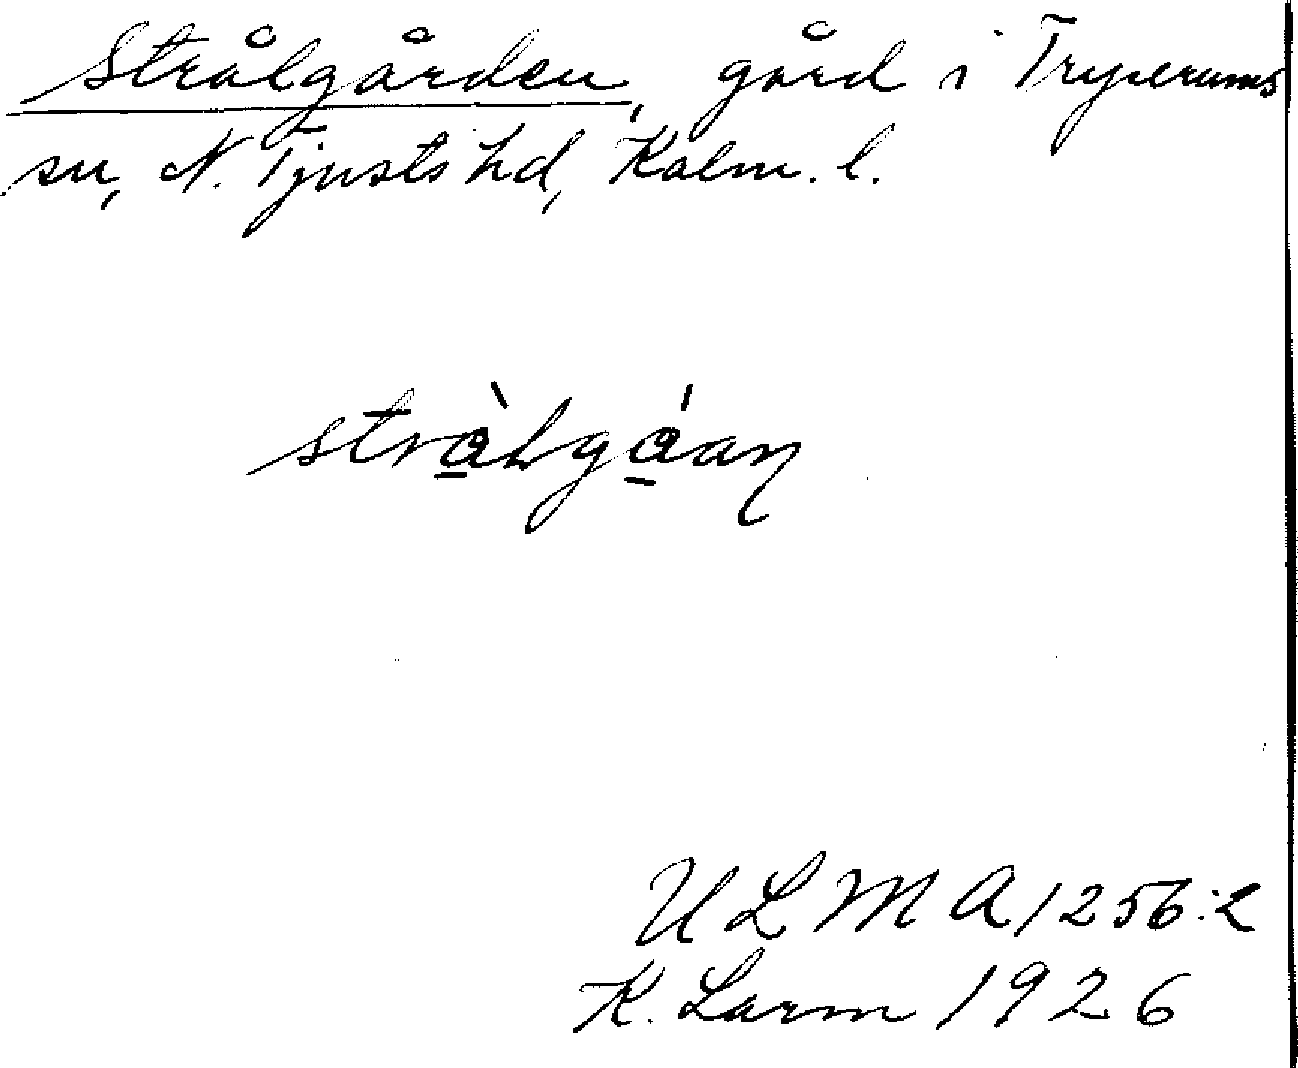 Strålgården, gård i Tryserums
sn, N. Tjusts hd, Kalm. l.
stràLgáan
ULMA 1256:2
K. Larm 1926